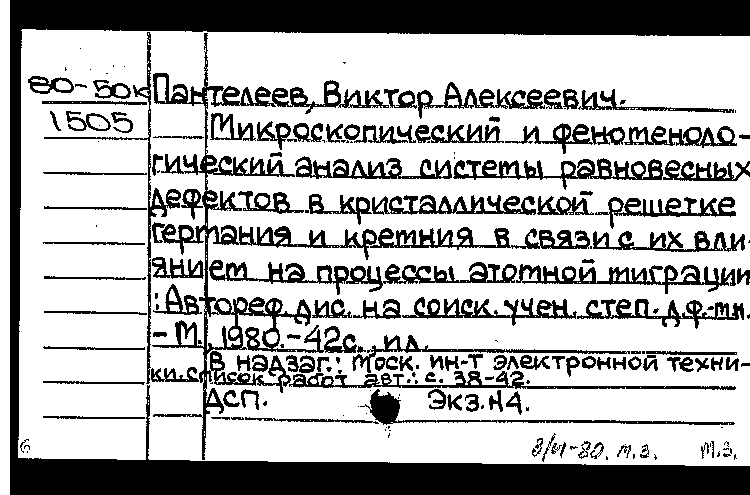 80-50к Пантелеев, Виктор Алексеевич.
1505 Микроскопический и феноменоло-
гический анализ системы равновесных
дефектов в кристаллической решетке
германия и кремния в связи с их вли-
янием на процессы атомной миграции
: Автореф. дис. на соиск. учен. степ. д.ф.-м.н.
- М., 1980.-42с., ил.
В надзаг.: Моск. ин-т электронной техни-
ки. список работ авт.: с. 38-42.
ДСП. Экз.№4.
6 3/VI-80. м.з. м.з.